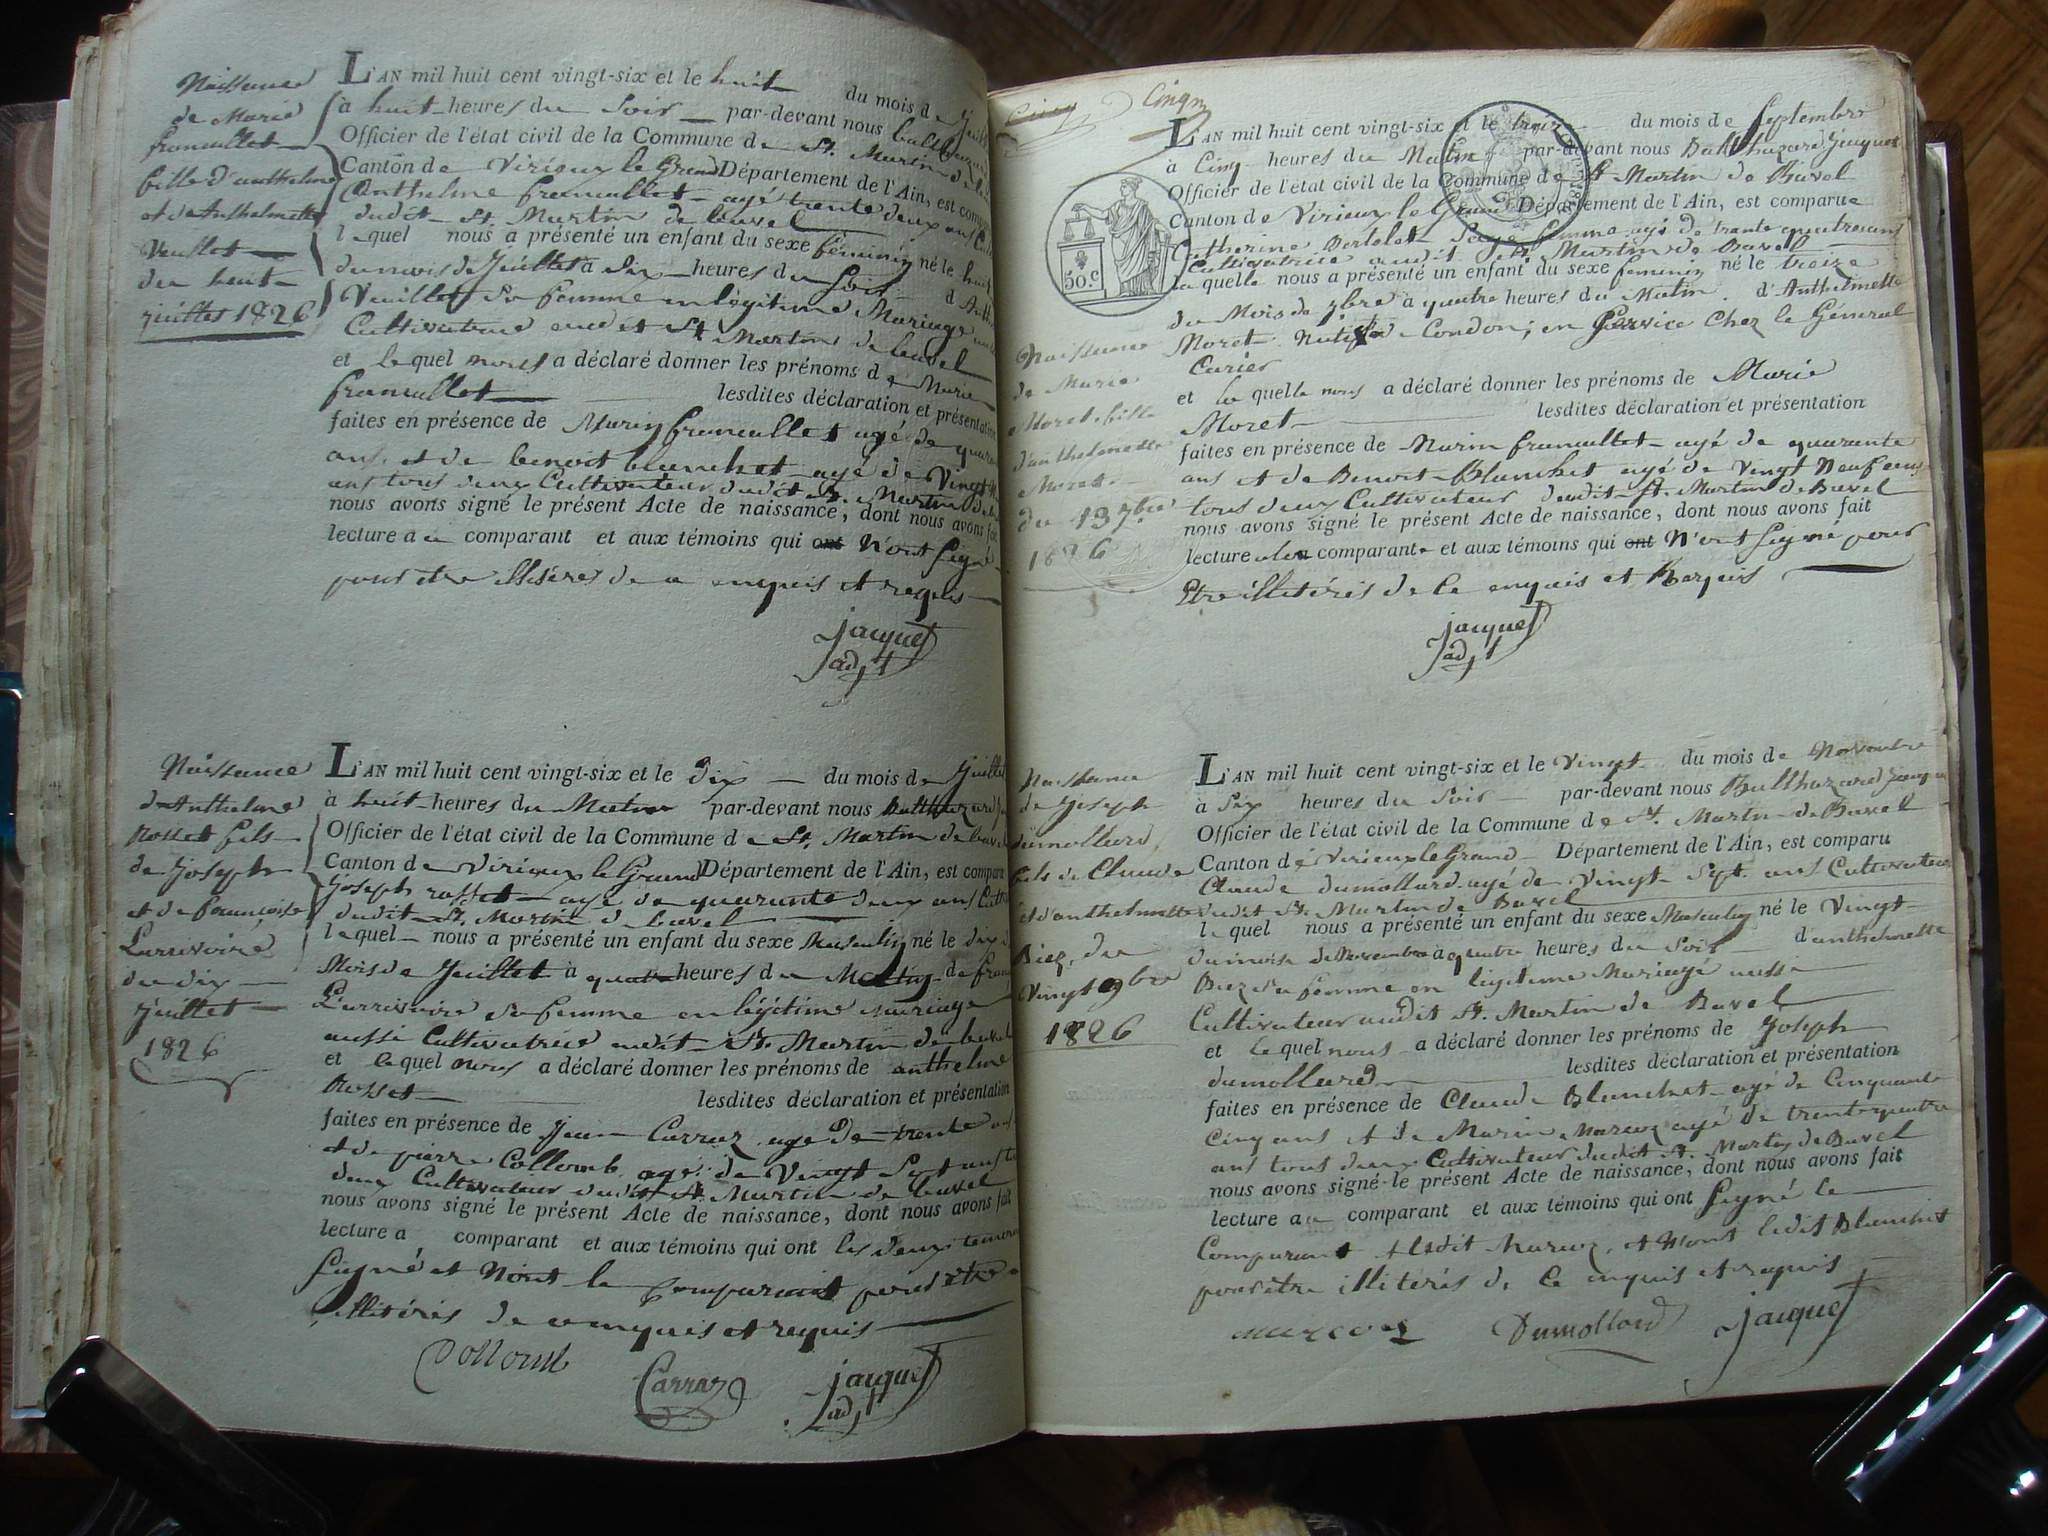 Naissance
de Marie
framullet
fille d'anthelme
et de Anthelmette
Veullet
du huit
juillet 1826
L'AN mil huit cent vingt-six et le huit du mois de
à huit heures du Soir par-devant nous
Officier de l'état civil de la Commune de St. Martin de
Canton de Virieux le Grand Département de l'Ain, est
Anthelme framullet agé trente deux ans
dudit St Martin de bavel
lequel nous a présenté un enfant du sexe féminin né le huit
du mois de Juillet à Six heures du Soir
Veuillet sa femme en légitime Mariage
Cultivateur audit St Martin de bavel
et lequel nous a déclaré donner les prénoms de Marie
framullet lesdites déclaration et présentation
faites en présence de Marin framullet agé de
ans, et de benoit blanchet agé de Vingt
ans tous deux Cultivateur dudit St. Martin de
nous avons signé le présent Acte de naissance, dont nous avons fait
lecture au comparant et aux témoins qui ont N'ont Signé
pour etre illitéres de ce enquis et requis
jacquet
adjt
Naissance
d'Anthelme
rosset fils
de Joseph
et de françoise
Larrivoire
du dix
juillet
1826
L'AN mil huit cent vingt-six et le dix du mois de Juillet
à huit heures du Matin par-devant nous Balthazard
Officier de l'état civil de la Commune de St. Martin de bavel
Canton de Virieux le Grand Département de l'Ain, est comparu
Joseph rosset agé de quarante deux ans
dudit St. Martin de bavel
lequel nous a présenté un enfant du sexe Masculin né le dix
Mois de Juillet à quatre heures du Matin de
Larrivoire sa femme en légitime mariage
aussi Cultivatrice audit St. Martin de bavel
et lequel nous a déclaré donner les prénoms de anthelme
Rosset lesdites déclaration et présentation
faites en présence de Jean Carraz agé De trente ans
et de pierre Collomb agé de Vingt Sept ans
deux Cultivateur dudit St Martin de bavel
nous avons signé le présent Acte de naissance, dont nous avons fait
lecture a comparant et aux témoins qui ont les deux temoins
Signé et Nont le comparant pour être
illitérés de ce enquis et requis
Collomb
Carraz
jacquet
adjt
Cinq
L'AN mil huit cent vingt-six et le treize du mois de Septembre
à Cinq heures du Matin par-devant nous Balthazard Jacquet
Officier de l'état civil de la Commune de St Martin de Bavel
Canton de Virieux le Grand Département de l'Ain, est comparue
Catherine Bertolet Sage femme agé de trante quatre ans
Cultivatrice audit St Martin de Bavel
laquelle nous a présenté un enfant du sexe feminin né le treize
50.c
du Mois de 7bre à quatre heures du Matin d'Anthelmette
Moret Native de Condon, en Service Chez le Général
Carier
et laquelle nous a déclaré donner les prénoms de Marie
Moret lesdites déclaration et présentation
faites en présence de Marin framullet agé de quarante
ans et de Benoit Blanchet agé de Vingt Neuf ans
tous deux Cultivateur dudit St. Martin de Bavel
nous avons signé le présent Acte de naissance, dont nous avons fait
lecture a la comparante et aux témoins qui ont N'ont Signé pour
Etre illitérés de ce enquis et Requis
jacquet
adjt
Naissance
de Marie
Moret fille
d'anthelmette
Moret
du 13 7bre
1826
Naissance
de Joseph
dumollard
fils de Claude
et d'anthelmette
Biez, du
Vingt 9bre
1826
L'AN mil huit cent vingt-six et le Vingt du mois de Novembre
à Six heures du Soir par-devant nous Balthazard Jacquet
Officier de l'état civil de la Commune de St. Martin de Bavel
Canton de Virieux le Grand Département de l'Ain, est comparu
Claude dumollard agé de Vingt Sept ans Cultivateur
dudit St. Martin de Bavel
lequel nous a présenté un enfant du sexe Masculin né le Vingt
du mois de Novembre à quatre heures du Soir d'anthelmette
Biez sa femme en légitime Mariage aussi
Cultivateur audit St. Martin de Bavel
et lequel nous a déclaré donner les prénoms de Joseph
dumollard lesdites déclaration et présentation
faites en présence de Claude Blanchet agé de Cinquante
Cinq ans et de Marin Marcoz agé de trente quatre
ans tous deux Cultivateur dudit St. Martin de Bavel
nous avons signé le présent Acte de naissance, dont nous avons fait
lecture au comparant et aux témoins qui ont Signé le
Comparant et ledit Marcoz, et Nont ledit Blanchet
pour être illitérés de ce enquis et requis
marcoz
Dumollard
jacquet